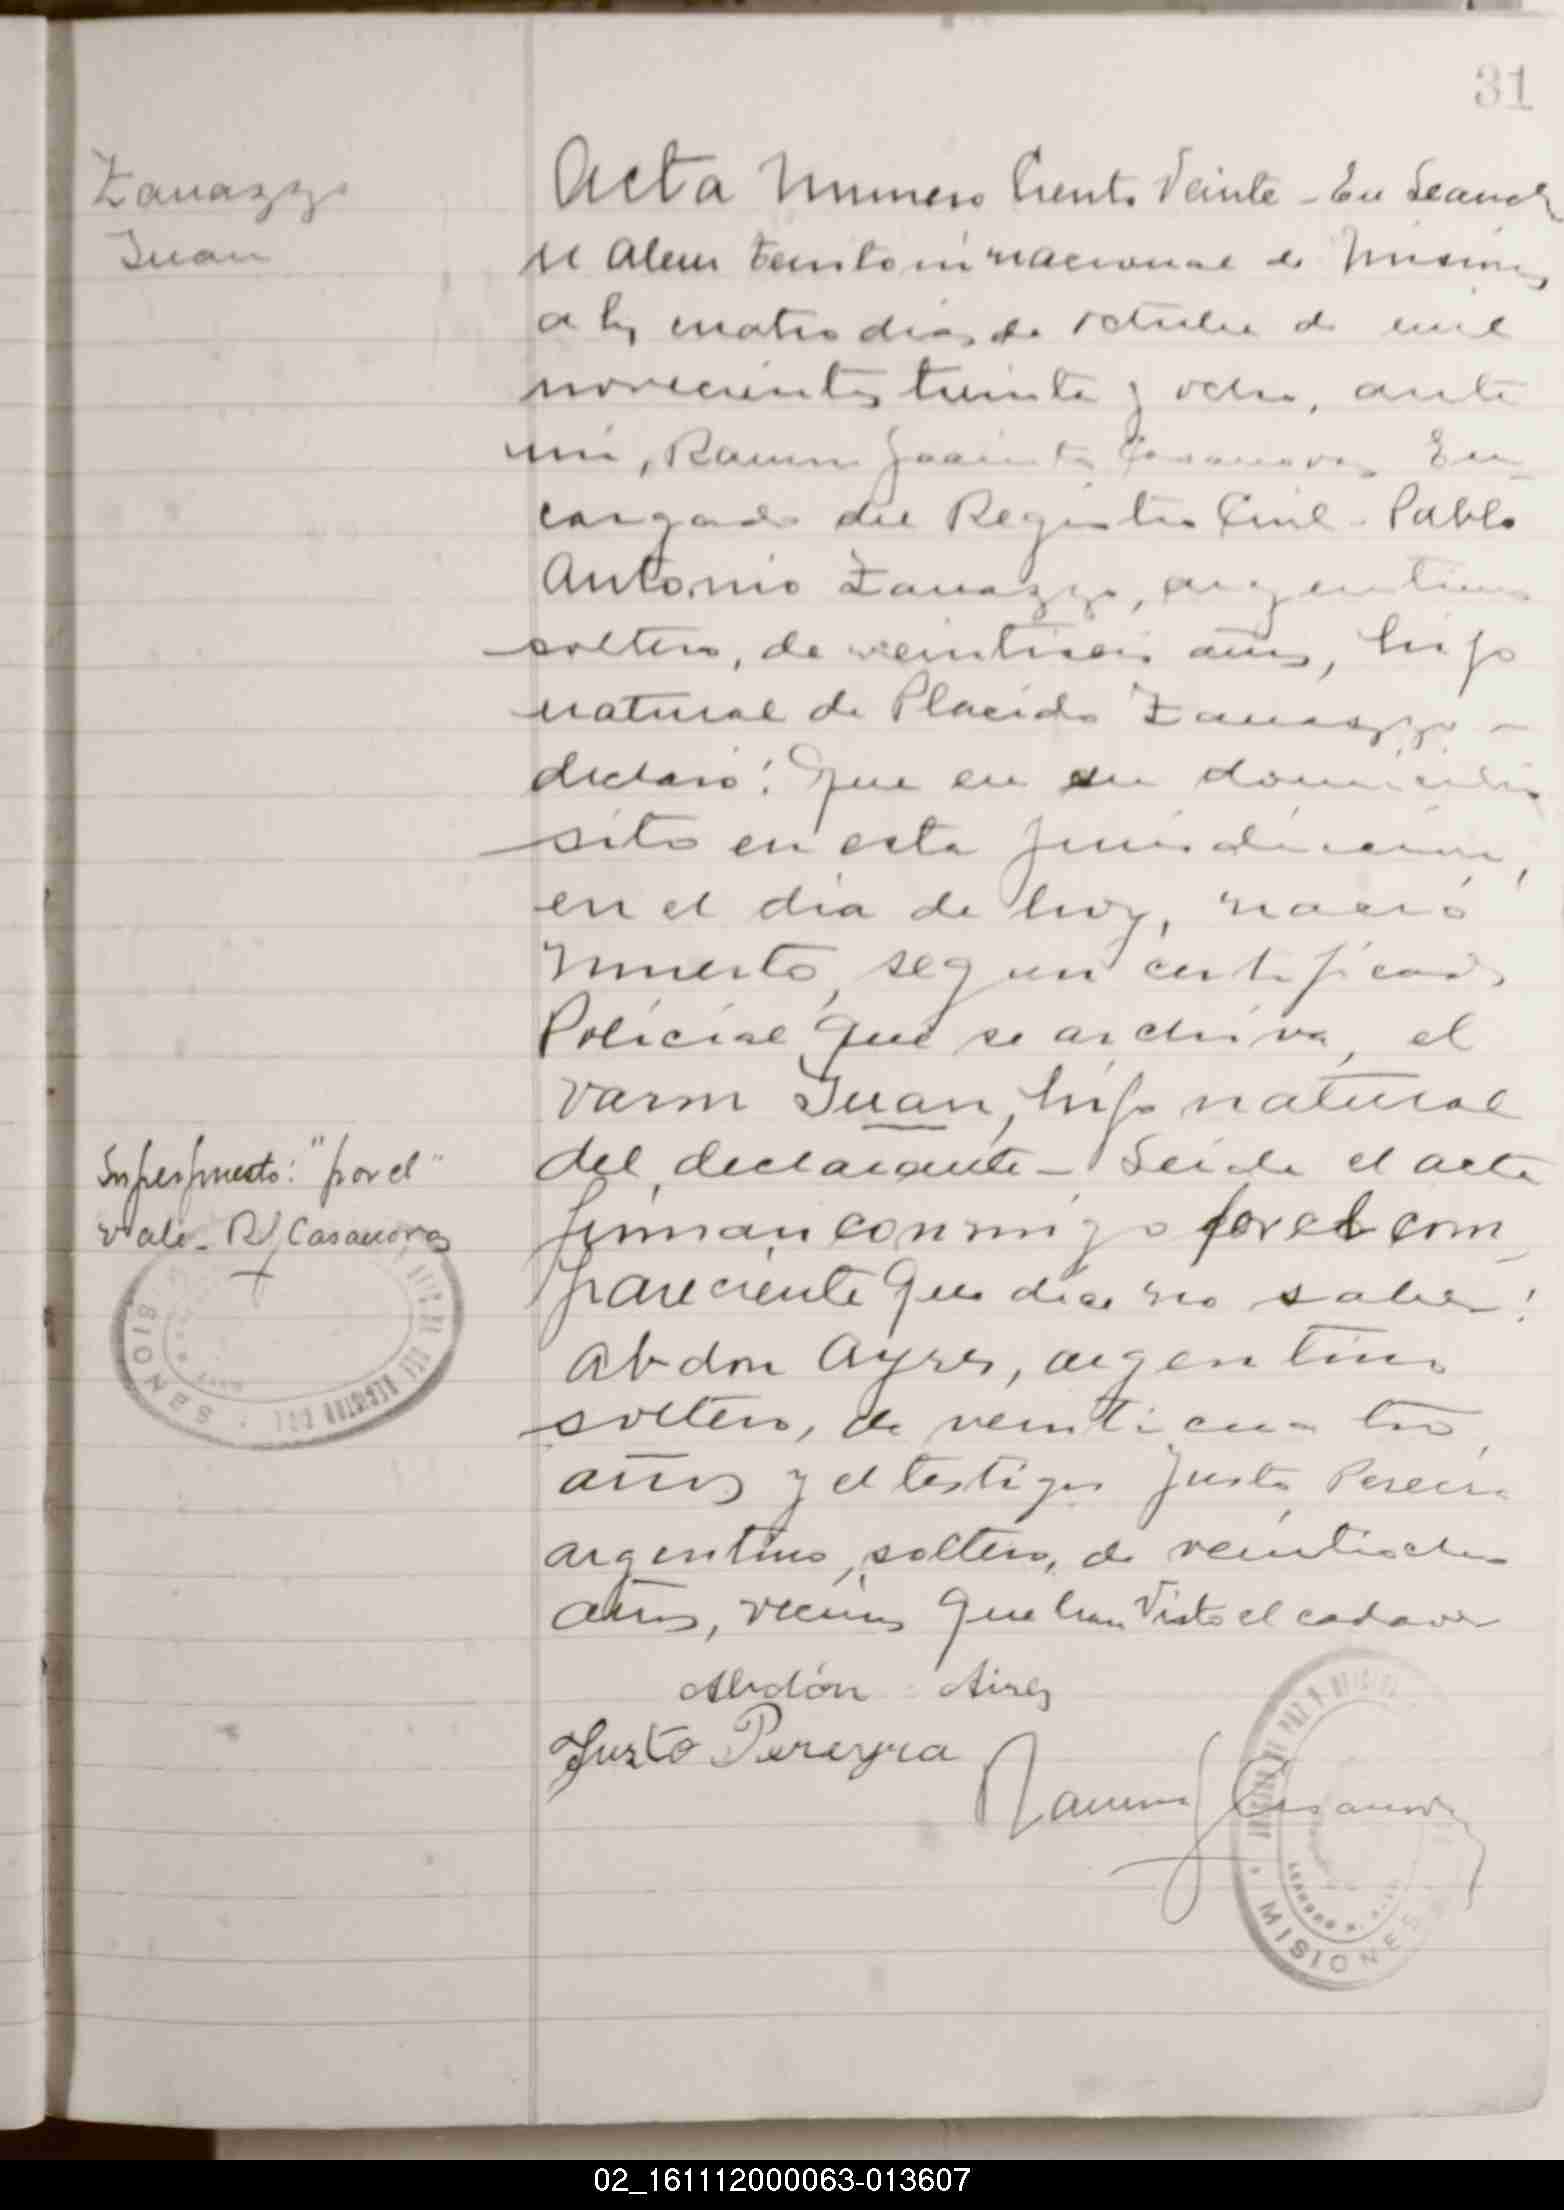 31
Zanazzo
Juan
Acta Numero Ciento Veinte - En Leandro
N Alem Territorio nacional de Misiones
a los cuatro dias de octubre de mil
novecientos treinta y ocho, ante
mi, Ramon Jacinto Casanova, En
cargado del Registro Civil - Pablo
Antonio Zanazzo, argentino
soltero, de veintiseis años, hijo
natural de Placida Zanazzo -
declaró: Que en su domicilio
sito en esta jurisdiccion,
en el dia de hoy, nació
muerto, segun certificado
Policial que se archiva, el
varon Juan, hijo natural
del declarante - Leida el acta
firman conmigo por el com
pareciente que dice no saber:
Abdon Ayres, argentino
soltero, de veinticuatro
años y el testigo Justo Pereira
argentino, soltero, de veintiocho
años, vecinos que han Visto el cadaver
Superpuesto: "por el"
vale - R J Casanova
DEL REGISTRO CIVIL
Abdón Aires
Justo Pereyra
Ramon J Casanova
MISIONES
02_161112000063-013607